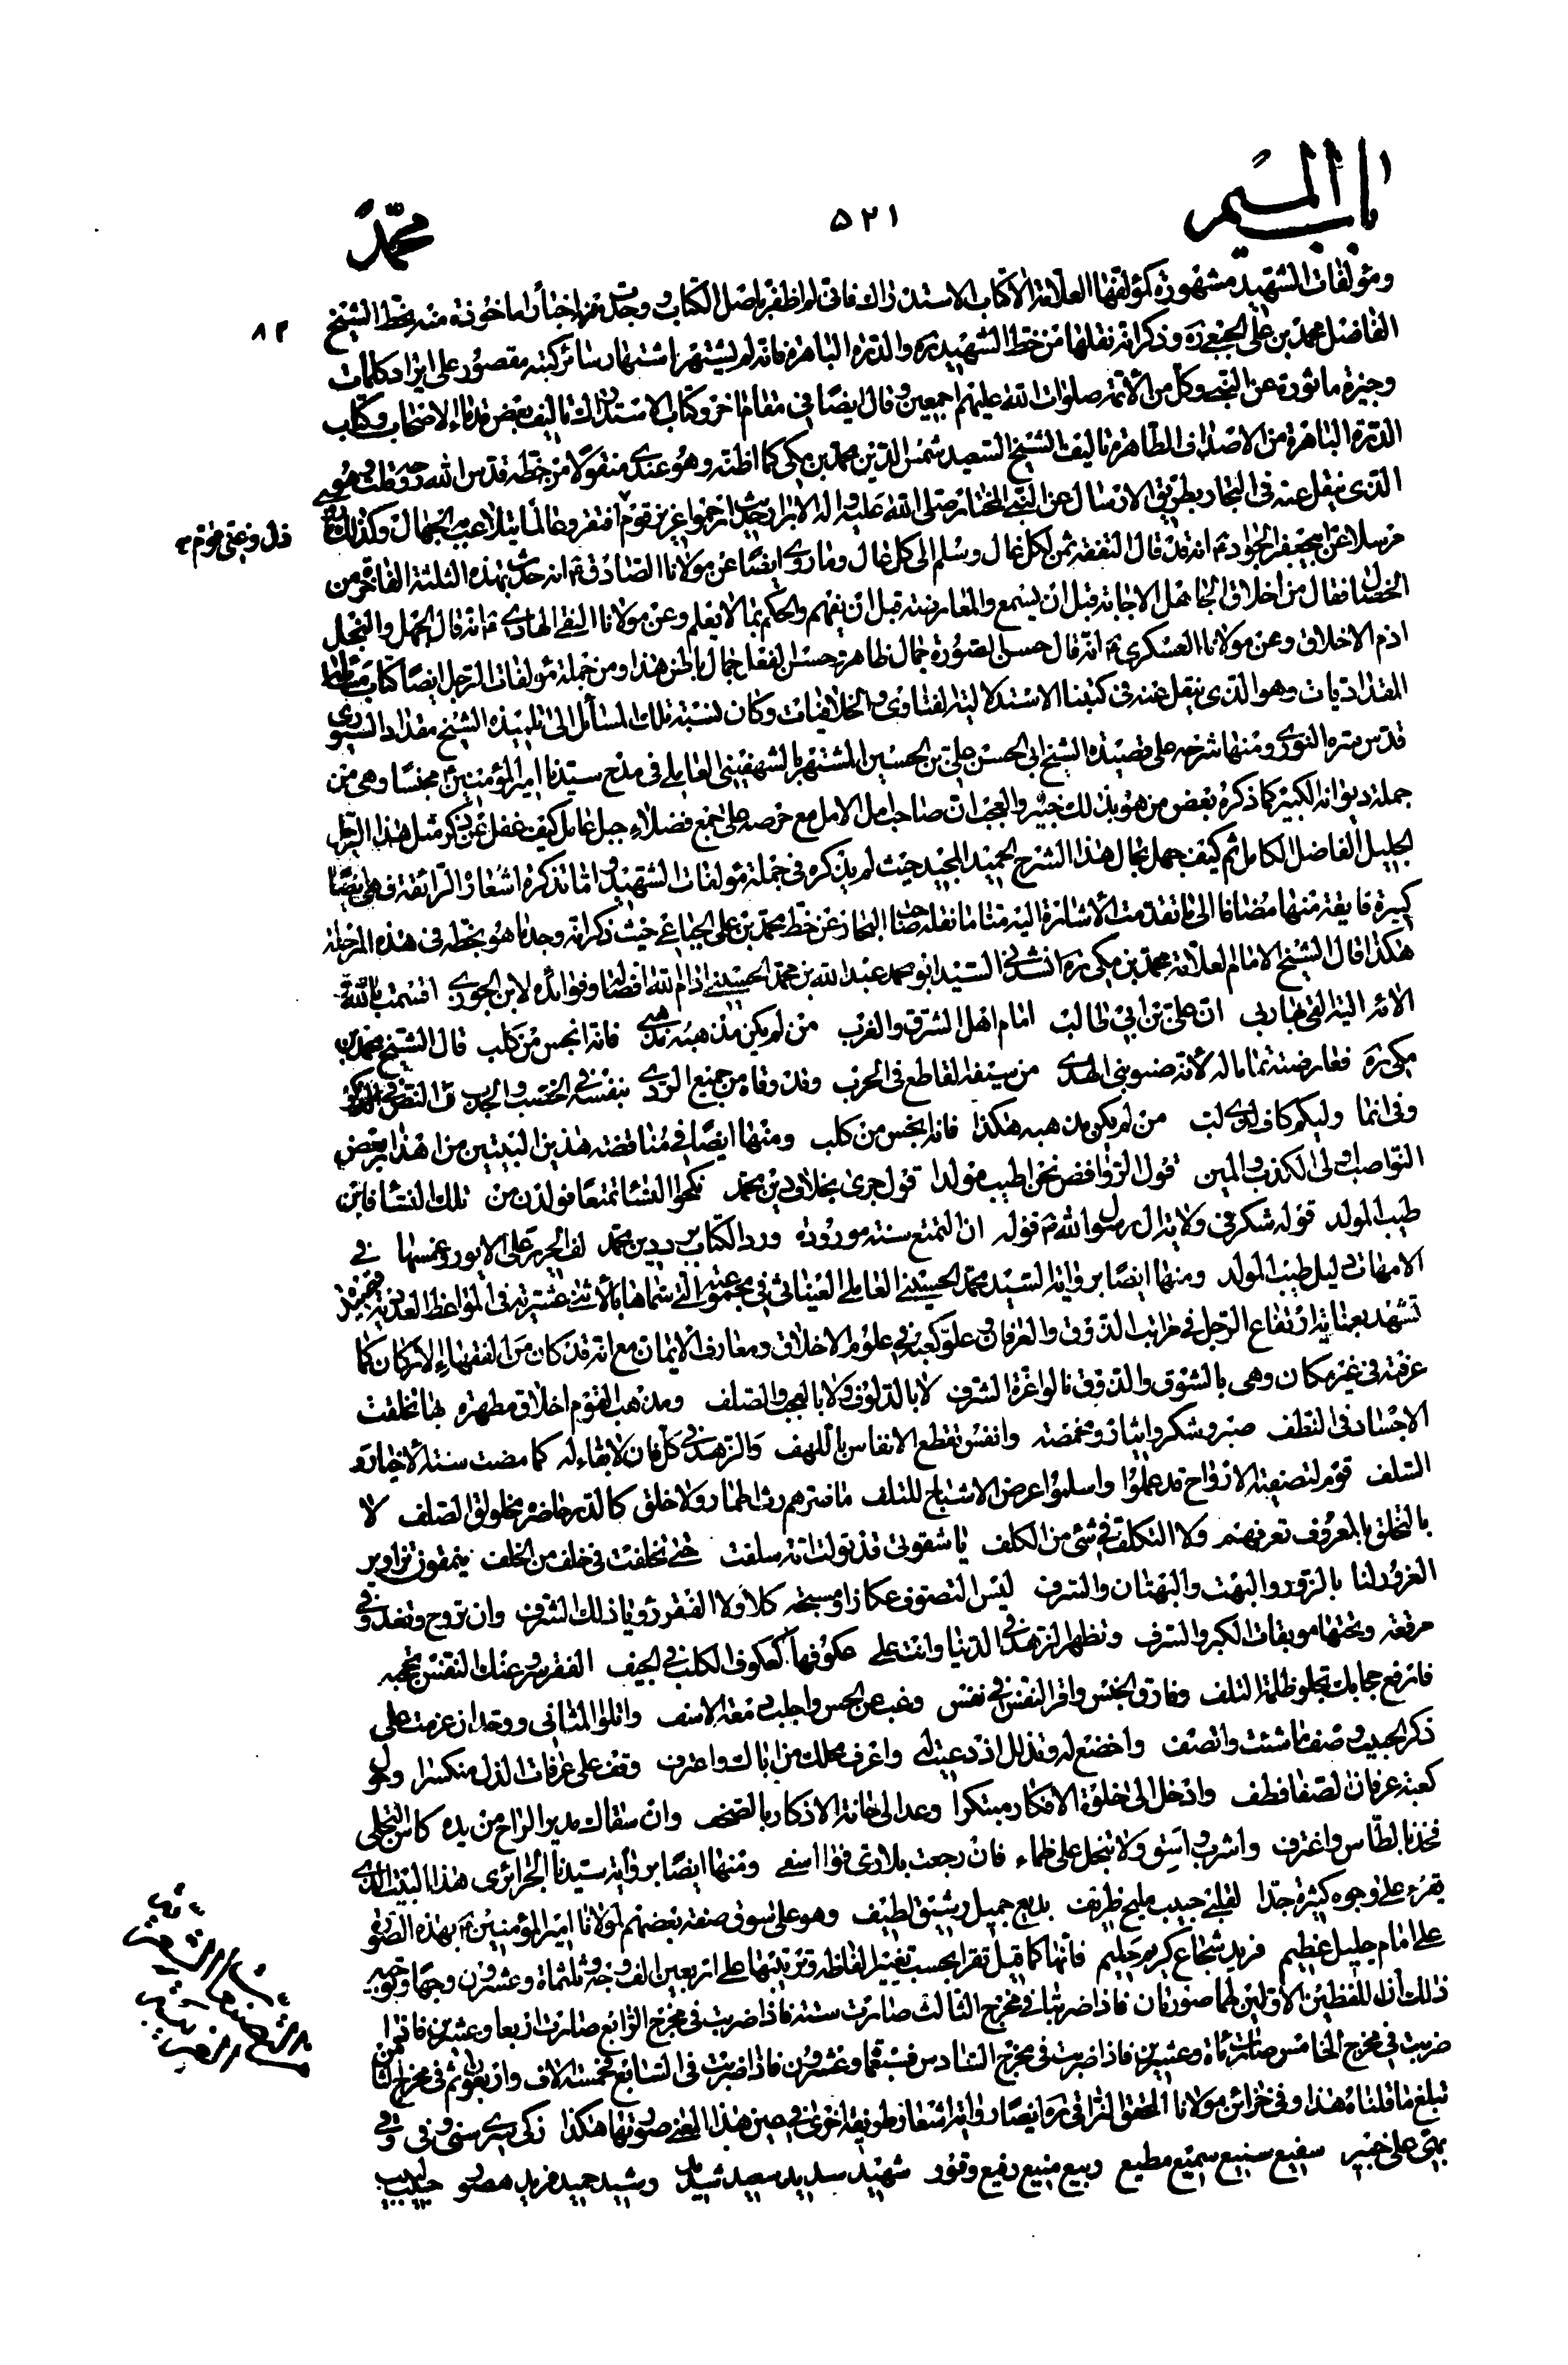 باب الميم
٥٢١
محمّد
ومؤلفات الشهيد مشهورة كمؤلفها العلامة الا كتاب الاستدراك فانى لم اظفر باصل الكتاب ووجدت منها اخبارا ماخوذة منه بخط الشيخ
٨٢
الفاضل محمد بن على الجبعى ره وذكر انه نقلها من خط الشهيد ره والدرة الباهرة فانه لم يشتهر اشتهار سائر كتبه مقصور على ايراد كلمات
وجيزة ماثورة عن النبى وكل من الائمة صلوات الله عليهم اجمعين وقال ايضا فى مقام اخر وكتاب الاستدراك تاليف بعض قدماء الاصحاب وكتاب
الدرة الباهرة من الاصداف الطاهرة تاليف الشيخ السعيد شمس الدين محمد بن مكى كما اظنه وهو عندى منقولا من خطه قدس الله روحه قلت وهو
الذى ينقل عنه فى البحار بطريق الارسال عن النبى المختار صلى الله عليه واله الابرار حديث ارحموا عزيز قوم افتقر وعالما يتلاعب به الجهال وكذلك
ذل وغنى قوم
مرسلا عن ابيجعفر الجواد ع انه قد قال التفقه ثمن لكل غال وسلم الى كل عال وما روى ايضا عن مولانا الصادق ع انه حدث بهذه الثلثة الفاخرة من
الخصال فقال من اخلاق الجاهل الاجابة قبل ان يسمع والمعارضة قبل ان يفهم والحكم بما لا يعلم وعن مولانا النقى الهادى ع انه قال الجهل والبخل
اذم الاخلاق وعن مولانا العسكرى ع انه قال حسن الصورة جمال ظاهر وحسن العقل جمال باطن هذا ومن جملة مؤلفات الرجل ايضا كتاب مسائله
المقداديات وهو الذى ينقل عنه فى كتبنا الاستدلالية الفتاوى والخلافيات وكان نسبة تلك المسائل الى تلميذه الشيخ مقداد السيورى
قدس سره النورى ومنها شرحه على قصيدة الشيخ ابى الحسن على بن الحسين المشتهر بالشهفينى العاملى فى مدح سيدنا امير المؤمنين مجنسا وهى من
جملة ديوانه الكبير كما ذكره بعض من هو بذلك خبير والعجب ان صاحب امل الامل مع حرصه على جمع فضلاء جبل عامل كيف غفل عن ذكر مثل هذا الرجل
الجليل الفاضل الكامل ثم كيف جهل بحال هذا الشرح الحميد المجيد حيث لم يذكره فى جملة مؤلفات الشهيد واما تذكرة اشعاره الرائقة فهى ايضا
كثيرة فايقة منها مضافا الى ما تقدمت الاشارة اليه منا ما نقله صاحب البحار عن خط محمد بن على الجباعى حيث ذكر انه وجد ما هو بخطه فى هذه المرحلة
هكذا قال الشيخ الامام العلامة محمد بن مكى ره انشدنى السيد ابو محمد عبد الله بن محمد الحسينى ادام الله افضاله وفوائده لابن الجوزى اقسمت بالله و
الائه الية القى بها ربى ان على بن ابى طالب امام اهل الشرق والغرب من لم يكن مذهبه مذهبى فانه انجس من كلب قال الشيخ محمد بن
مكى ره فعارضته تماما له لانه صنو نبى الهدى من سيفه القاطع فى الحرب وقد وقاه من جميع الردى بنفسه فى الخصب والجدب والنص فى الذكر
وفى انما وليكم كاف لذى لب من لم يكن مذهبه هكذا فانه انجس من كلب ومنها ايضا فى مناقضة هذين البيتين من اهذار بعض
النواصب اولى الكذب والمين قول الروافض نحن اطيب مولدا قول جرى بخلاف دين محمد نكحوا النساء تمتعا فولدن من تلك النساء فاين
طيب المولد قوله شكر فى ولاية ال رسول الله ص قوله ان التمتع سنة مورودة ورد الكتاب بها ودين محمد لف الحرير على الايور وغمسها فى
الامهات دليل طيب المولد ومنها ايضا برواية السيد محمد الحسينى العاملى العيناثى فى مجموعته التى سماها بالاثنى عشرية فى المواعظ العددية قصيدة
تشهد بعناية ارتفاع الرجل فى مراتب الذوق والعرفان وعلو كعبه فى علوم الاخلاق ومعارف الايمان مع انه قد كان من الفقهاء الاركان كما
عرفته فى غير مكان وهى بالشوق والذوق نالوا عزة الشرف لا بالدلوف ولا بالعجب والصلف ومذهب القوم اخلاق مطهرة بها تخلقت
الاجساد فى النطف صبر وشكر وايثار ومخمصة وانفس تقطع الانفاس باللهف والزهد فى كل فان لا بقاء له كما مضت سنة الاخيار و
السلف قوم لتصفية الارواح قد عملوا واسلموا عرض الاشباح للتلف ما ضرهم رث اطمار ولا خلق كالدر حاضره مخلولق الصدف لا
بالتخلق بالمعروف تعرفهم ولا التكلف فى شئ من الكلف يا شقوتى قد تولت امة سلفت حتى تخلفت فى خلف من الخلف ينمقون تزاوير
الغرور لنا بالزور والبهت والبهتان والسرف ليس التصوف عكازا ومسبحة كلا ولا الفقر رؤيا ذلك الشرف وان تروح وتغدو فى
مرقعة وتحتها موبقات الكبر والسرف وتظهر الزهد فى الدنيا وانت على عكوفها كعكوف الكلب فى الجيف الفقر سر وعنك النفس تحجبه
فارفع حجابك تجلو ظلمة التلف وفارق الجنس واقر النفس فى نفس وغب عن الحس واجلب دمعة الاسف واتلو المثانى ووحد ان عزمت على
ذكر الحبيب وصف ما شئت واتصف واخضع له وتذلل اذ دعيت له واعرف محلك من اباك واعترف وقف على عرفات الذل منكسرا وحول
كعبة عرفان الصفا فطف وادخل الى خلوة الافكار مبتكرا وعد الى حانة الاذكار بالصحف وان سقاك مدير الراح من يده كاس التجلى
فخذ بالطاس واغترف واشرب واسق ولا تبخل على ظماء فان رجعت بلا رى فوا اسفى ومنها ايضا برواية سيدنا الجزائرى هذا البيت الذى
يقرء على وجوه كثيرة جدا لقلبى حبيب مليح ظريف بديع جميل رشيق لطيف وهو على نسق صنعة بعضهم لمولانا امير المؤمنين ع بهذه الصورة
على امام جليل عظيم فريد شجاع كريم حليم فانها كما قيل تقرا بحسب تغيير الفاظه وترتيبها على اربعين الف وجه وثلثماة وعشرون وجها وتوجيه
ذلك ان اللفظين الاولين لهما صورتان فاذا ضربتها فى مخرج الثالث صارت ستة فاذا ضربت فى مخرج الرابع صارت اربعا وعشرين فاذا
ضربت فى مخرج الخامس صارت مائة وعشرين فاذا ضربت فى مخرج السادس فسبعمائة وعشرون فاذا ضربت فى السابع فخمسة الاف واربعون ثم فى مخرج الثامن
تبلغ ما قلناه هذا وفى خزائن مولانا المحقق النراقى ره ايضا رواية اشعار طويفة اخرى فى عين هذا المعنى صورتها هكذا زكى سرى سنى وفى
بهى على خبير سفيع سنيع سميع مطيع ربيع منيع رفيع وقور شهيد سديد سعيد شديد رشيد حميد فريد